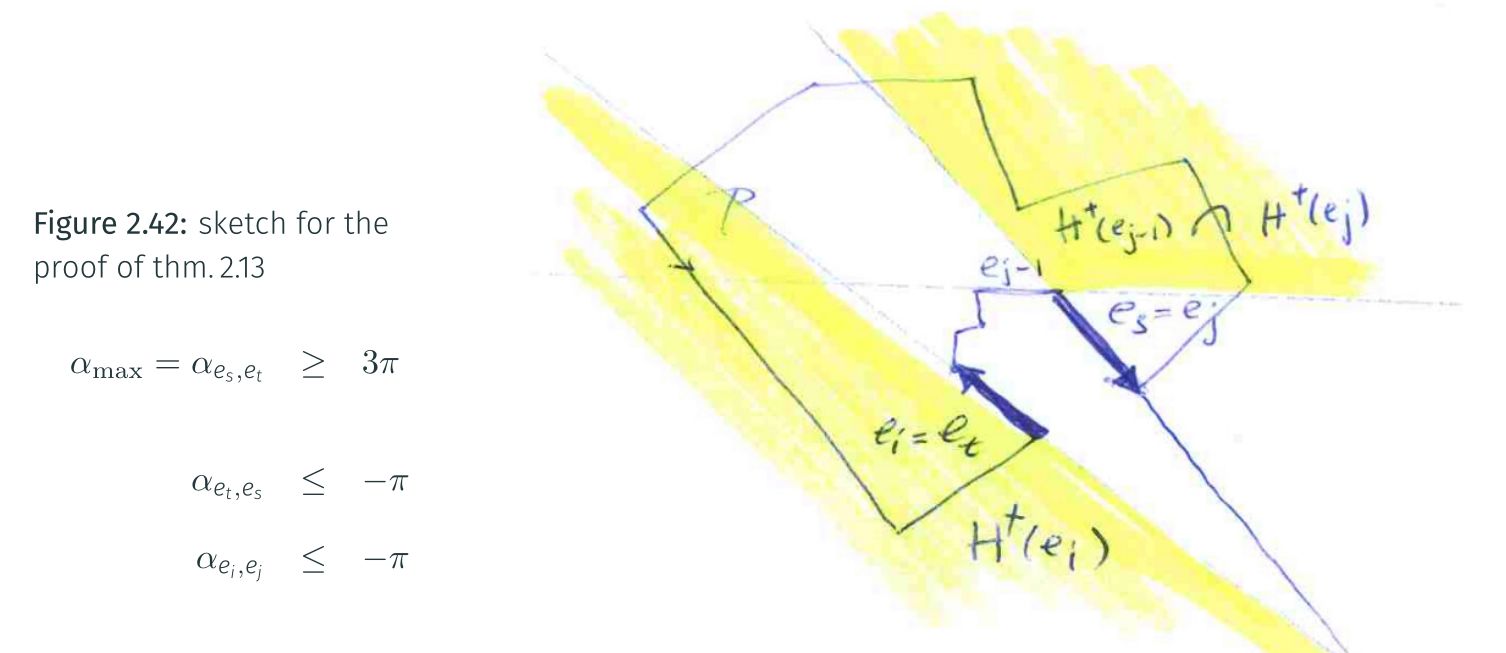 Figure 2.42: sketch for the
proof of thm. 2.13
α_max = α_{e_s,e_t} ≥ 3π
α_{e_t,e_s} ≤ −π
α_{e_i,e_j} ≤ −π
P
H⁺(e_{j-1}) ∩ H⁺(e_j)
e_{j-1}
e_s = e_j
e_i = e_t
H⁺(e_i)